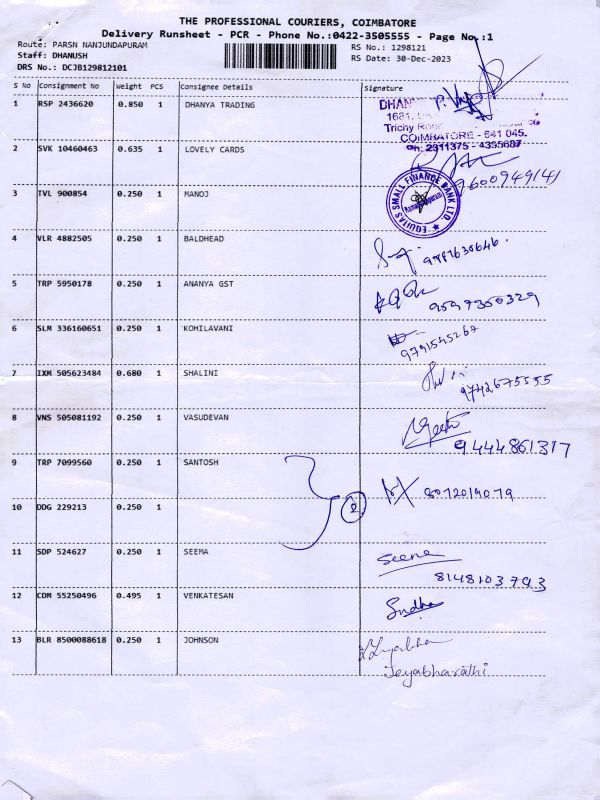 THE PROFESSIONAL COURIERS, COIMBATORE
Delivery Runsheet - PCR - Phone No.:0422-3505555 - Page No.:1
Route: PARSN NANJUNDAPURAM RS No.: 1298121
Staff: DHANUSH RS Date: 30-Dec-2023
DRS No.: DCJB129812101
S No Consignment No Weight PCS Consignee Details Signature
1 RSP 2436620 0.850 1 DHANYA TRADING
DHAN
1681,
Trichy
COIMBATORE - 641 045.
Ph: 2311375 - 4395687
2 SVK 10460463 0.635 1 LOVELY CARDS
9600949141
3 TVL 900854 0.250 1 MANOJ
EQUITAS SMALL FINANCE BANK LTD
4 VLR 4882505 0.250 1 BALDHEAD
5 TRP 5950178 0.250 1 ANANYA GST
9597360329
6 SLM 336160651 0.250 1 KOHILAVANI
9791545267
7 IXM 505623484 0.680 1 SHALINI
9742675555
8 VNS 505081192 0.250 1 VASUDEVAN
Geetha
9444861317
9 TRP 7099560 0.250 1 SANTOSH
8072019079
10 DDG 229213 0.250 1
2
11 SDP 524627 0.250 1 SEEMA
Seema
8148103793
12 CDM 55250496 0.495 1 VENKATESAN
Sudha
13 BLR 8500088618 0.250 1 JOHNSON
Jeyabharathi